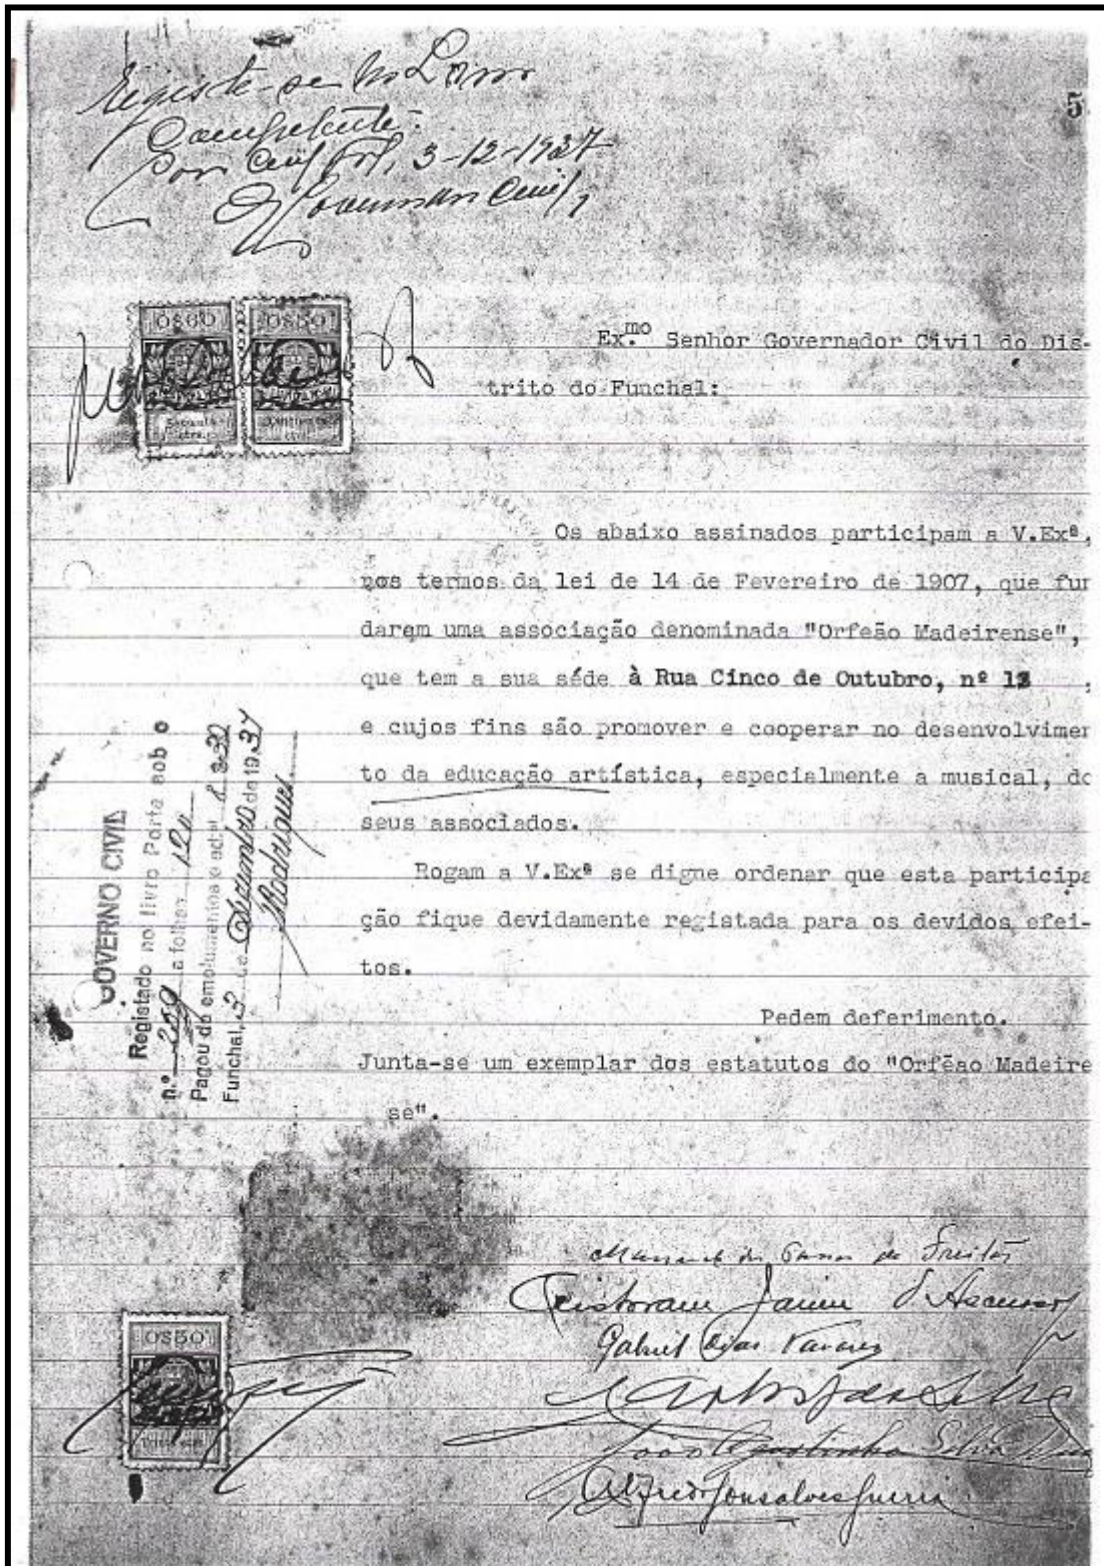 Registe-se no Livro
Competente.
Gov. Civil 3-12-1937
O Governador Civil,
5
0$60
0$50
Ex.mo Senhor Governador Civil do Dis-
trito do Funchal:
Os abaixo assinados participam a V.Exª,
nos termos da lei de 14 de Fevereiro de 1907, que fun
darem uma associação denominada "Orfeão Madeirense",
que tem a sua séde à Rua Cinco de Outubro, nº 13 ,
e cujos fins são promover e cooperar no desenvolvimen
to da educação artística, especialmente a musical, do
seus associados.
Rogam a V.Exª se digne ordenar que esta participa
ção fique devidamente registada para os devidos efei-
tos.
Pedem deferimento.
Junta-se um exemplar dos estatutos do "Orfeão Madeire
se".
GOVERNO CIVIL
Registado no livro Porta sob o
n.º 209 a folhas 120
Pagou de emolumentos e adi.
Funchal, 3 de Dezembro de 1937
Rodrigues
0$50
Manuel dos Passos de Freitas
Cristovam Jaime
Gabriel Dias Tavares
João Agostinho Silva
Alfredo Gonsalves Guerra